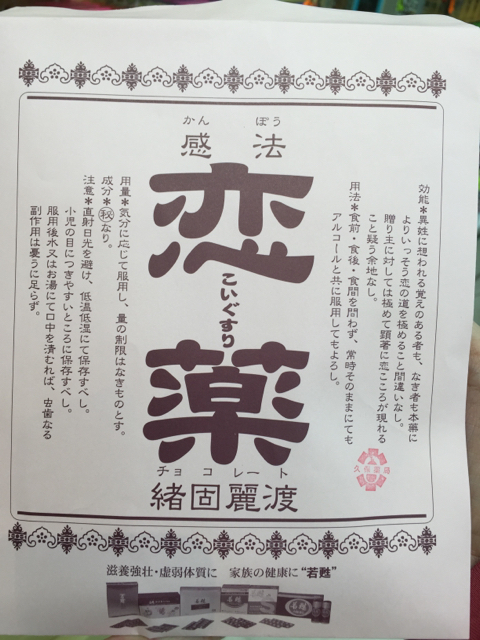 かん ぽう
感法
恋薬
こいぐすり
チョコレート
緒固麗渡
効能＊異性に想われる覚えのある者も、なき者も本薬に
よりいっそう恋の道を極めること間違いなし。
贈り主に対しては極めて顕著に恋ごころが現れる
こと疑う余地なし。
用法＊食前・食後・食間を問わず、常時そのままにても
アルコールと共に服用してもよろし。
用量＊気分に応じて服用し、量の制限はなきものとす。
成分＊㊙なり。
注意＊直射日光を避け、低温低湿にて保存すべし。
小児の目につきやすいところに保存すべし。
服用後水又はお湯にて口中を濯むれば、虫歯なる
副作用は憂うに足らず。
滋養強壮・虚弱体質に 家族の健康に“若甦”